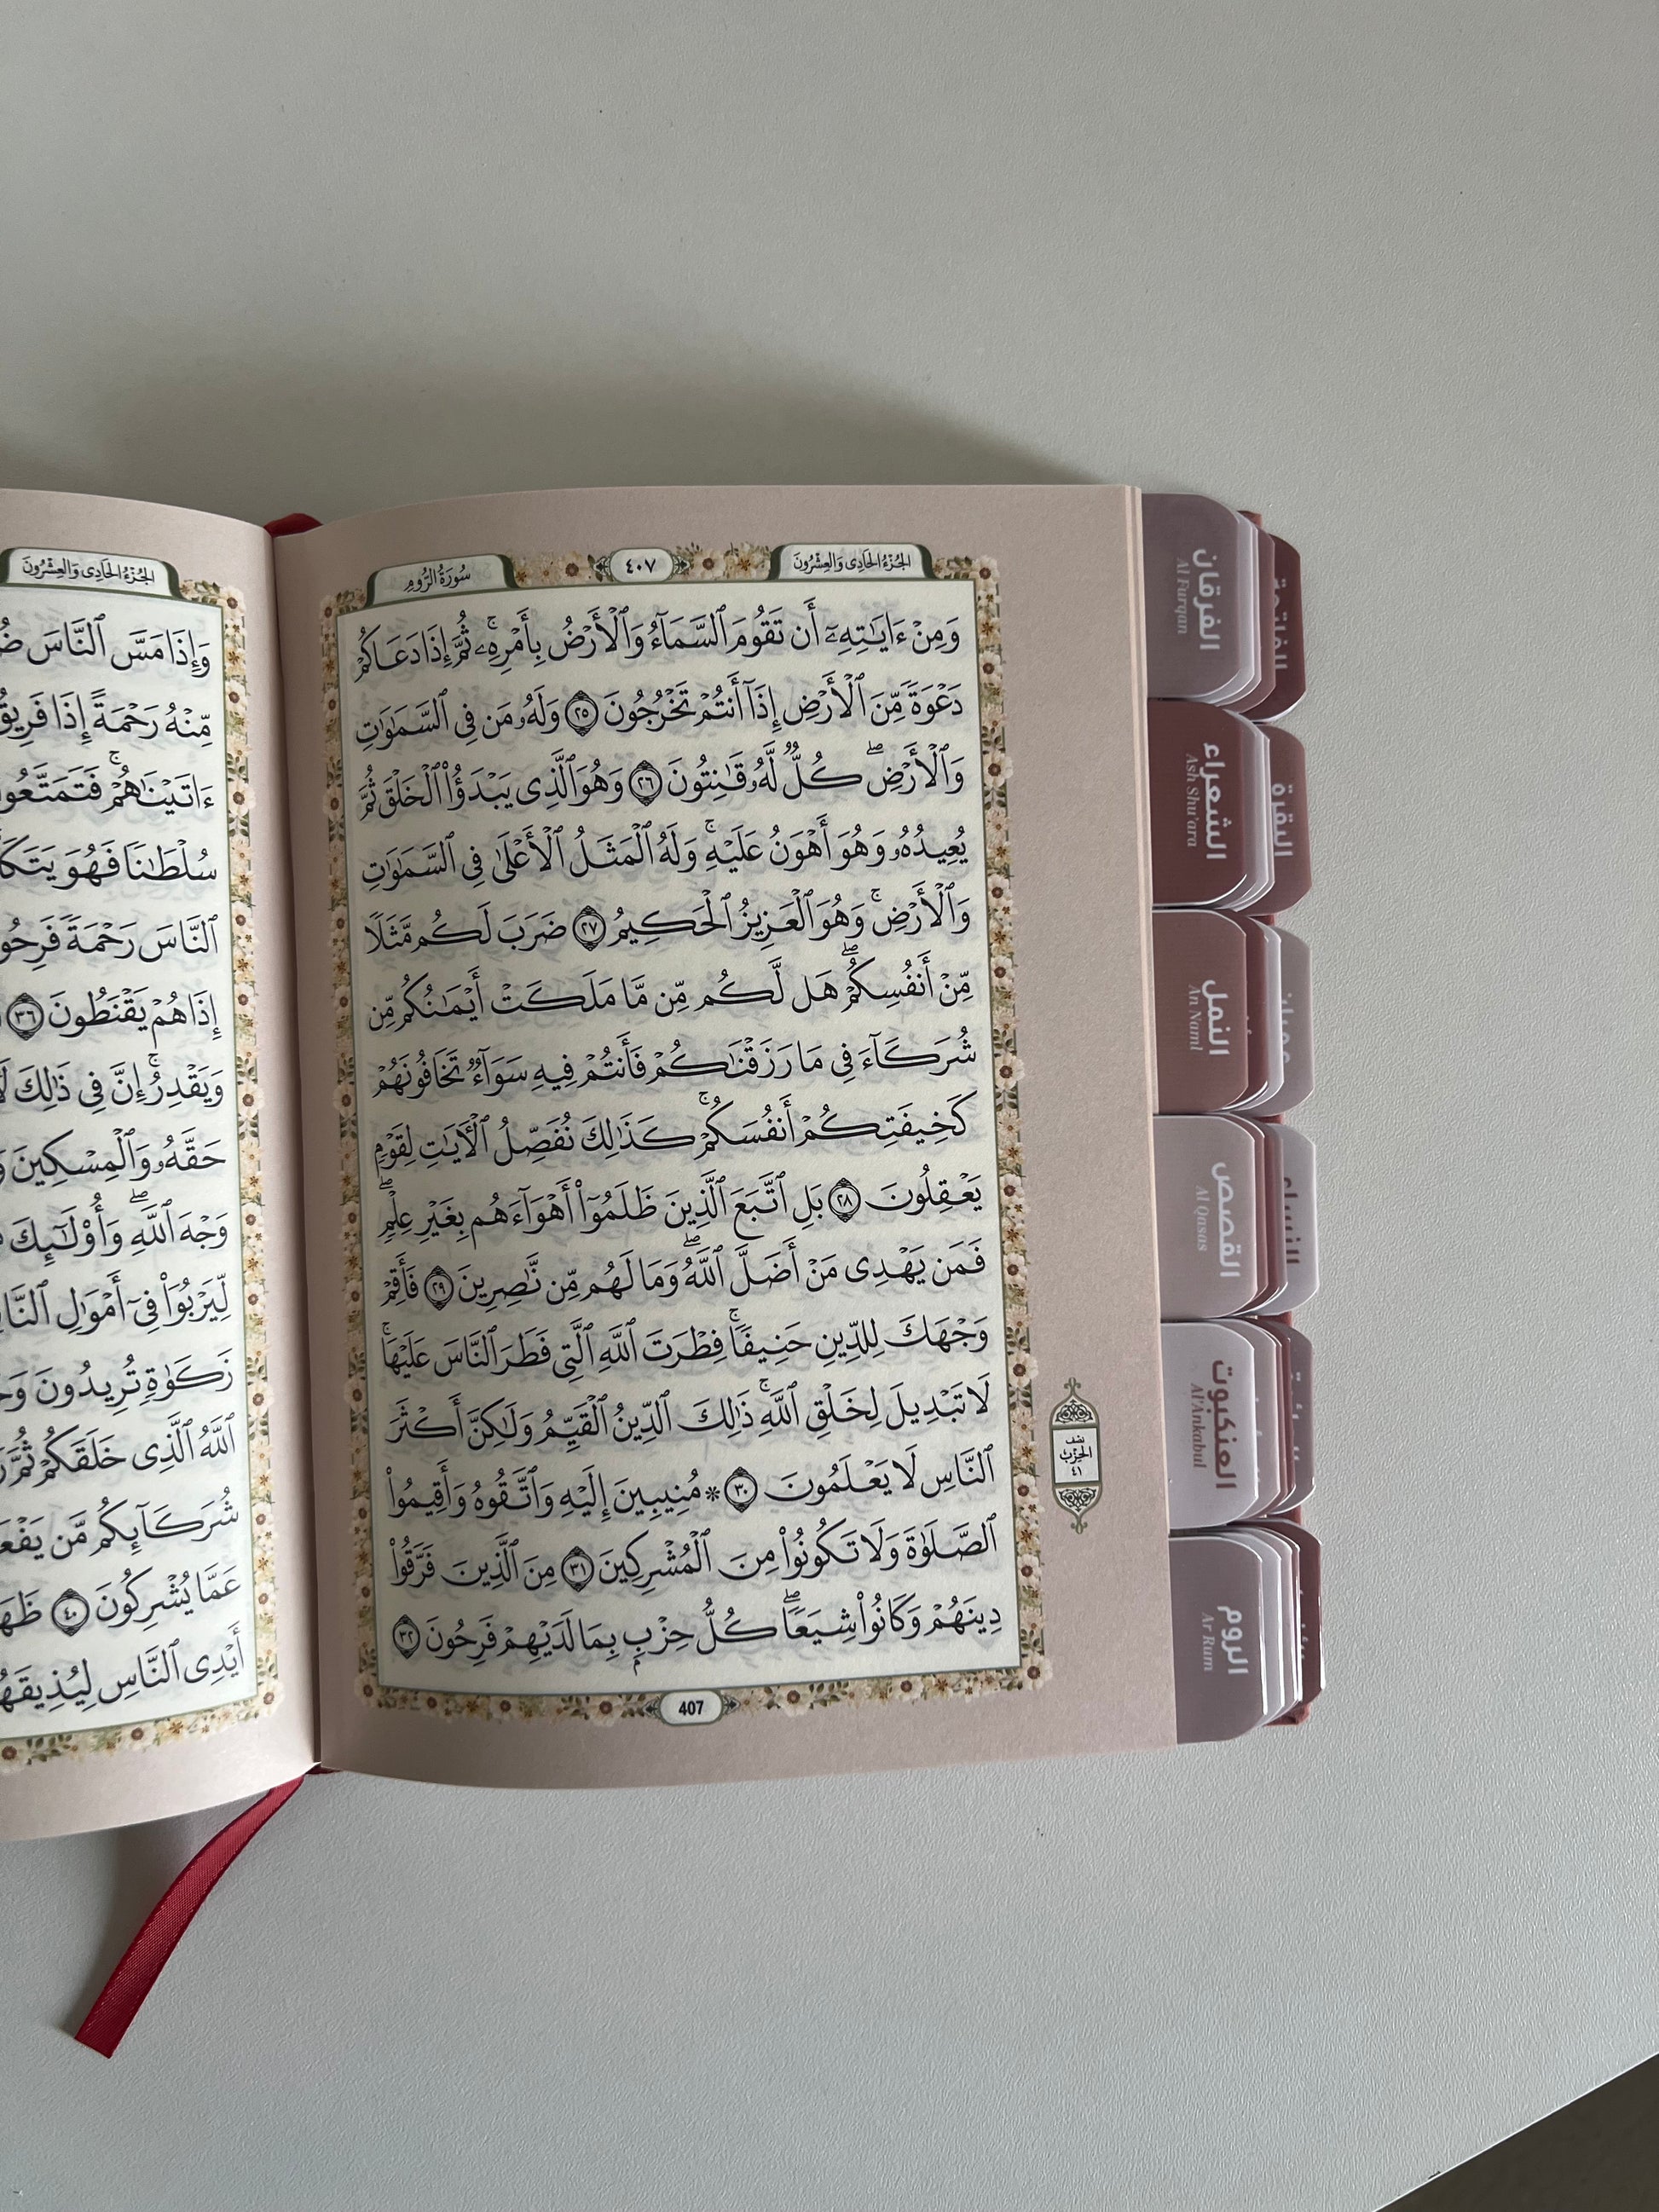 الجزء الحادي والعشرون
٤٠٧
سورة الروم
وَمِنْ ءَايَٰتِهِۦٓ أَن تَقُومَ ٱلسَّمَآءُ وَٱلْأَرْضُ بِأَمْرِهِۦۚ ثُمَّ إِذَا دَعَاكُمْ
دَعْوَةً مِّنَ ٱلْأَرْضِ إِذَآ أَنتُمْ تَخْرُجُونَ ٢٥ وَلَهُۥ مَن فِى ٱلسَّمَٰوَٰتِ
وَٱلْأَرْضِۖ كُلٌّ لَّهُۥ قَٰنِتُونَ ٢٦ وَهُوَ ٱلَّذِى يَبْدَؤُا۟ ٱلْخَلْقَ ثُمَّ
يُعِيدُهُۥ وَهُوَ أَهْوَنُ عَلَيْهِۚ وَلَهُ ٱلْمَثَلُ ٱلْأَعْلَىٰ فِى ٱلسَّمَٰوَٰتِ
وَٱلْأَرْضِۚ وَهُوَ ٱلْعَزِيزُ ٱلْحَكِيمُ ٢٧ ضَرَبَ لَكُم مَّثَلًا
مِّنْ أَنفُسِكُمْۖ هَل لَّكُم مِّن مَّا مَلَكَتْ أَيْمَٰنُكُم مِّن
شُرَكَآءَ فِى مَا رَزَقْنَٰكُمْ فَأَنتُمْ فِيهِ سَوَآءٌ تَخَافُونَهُمْ
كَخِيفَتِكُمْ أَنفُسَكُمْۚ كَذَٰلِكَ نُفَصِّلُ ٱلْءَايَٰتِ لِقَوْمٍ
يَعْقِلُونَ ٢٨ بَلِ ٱتَّبَعَ ٱلَّذِينَ ظَلَمُوٓا۟ أَهْوَآءَهُم بِغَيْرِ عِلْمٍۖ
فَمَن يَهْدِى مَنْ أَضَلَّ ٱللَّهُۖ وَمَا لَهُم مِّن نَّٰصِرِينَ ٢٩ فَأَقِمْ
وَجْهَكَ لِلدِّينِ حَنِيفًاۚ فِطْرَتَ ٱللَّهِ ٱلَّتِى فَطَرَ ٱلنَّاسَ عَلَيْهَاۚ
لَا تَبْدِيلَ لِخَلْقِ ٱللَّهِۚ ذَٰلِكَ ٱلدِّينُ ٱلْقَيِّمُ وَلَٰكِنَّ أَكْثَرَ
ٱلنَّاسِ لَا يَعْلَمُونَ ٣٠ * مُنِيبِينَ إِلَيْهِ وَٱتَّقُوهُ وَأَقِيمُوا۟
ٱلصَّلَوٰةَ وَلَا تَكُونُوا۟ مِنَ ٱلْمُشْرِكِينَ ٣١ مِنَ ٱلَّذِينَ فَرَّقُوا۟
دِينَهُمْ وَكَانُوا۟ شِيَعًاۖ كُلُّ حِزْبٍۭ بِمَا لَدَيْهِمْ فَرِحُونَ ٣٢
407
نصف
الحزب
٤١
الفرقان
Al Furqan
الشعراء
Ash Shu'ara
النمل
An Naml
القصص
Al Qasas
العنكبوت
Al'Ankabut
الروم
Ar Rum
البقرة
النساء
الجزء الحادي والعشرون
وَإِذَا مَسَّ ٱلنَّاسَ
مِّنْهُ رَحْمَةً إِذَا فَرِيقٌ
ءَاتَيْنَٰهُمْۚ فَتَمَتَّعُوا۟
سُلْطَٰنًا فَهُوَ
ٱلنَّاسَ رَحْمَةً
إِذَا هُمْ يَقْنَطُونَ ٣٦
وَيَقْدِرُۚ إِنَّ فِى ذَٰلِكَ
حَقَّهُۥ وَٱلْمِسْكِينَ
وَجْهَ ٱللَّهِۖ وَأُو۟لَٰٓئِكَ
لِّيَرْبُوَا۟ فِىٓ أَمْوَٰلِ
زَكَوٰةٍ تُرِيدُونَ
ٱللَّهُ ٱلَّذِى خَلَقَكُمْ ثُمَّ
شُرَكَآئِكُم مَّن
عَمَّا يُشْرِكُونَ ٤٠
أَيْدِى ٱلنَّاسِ